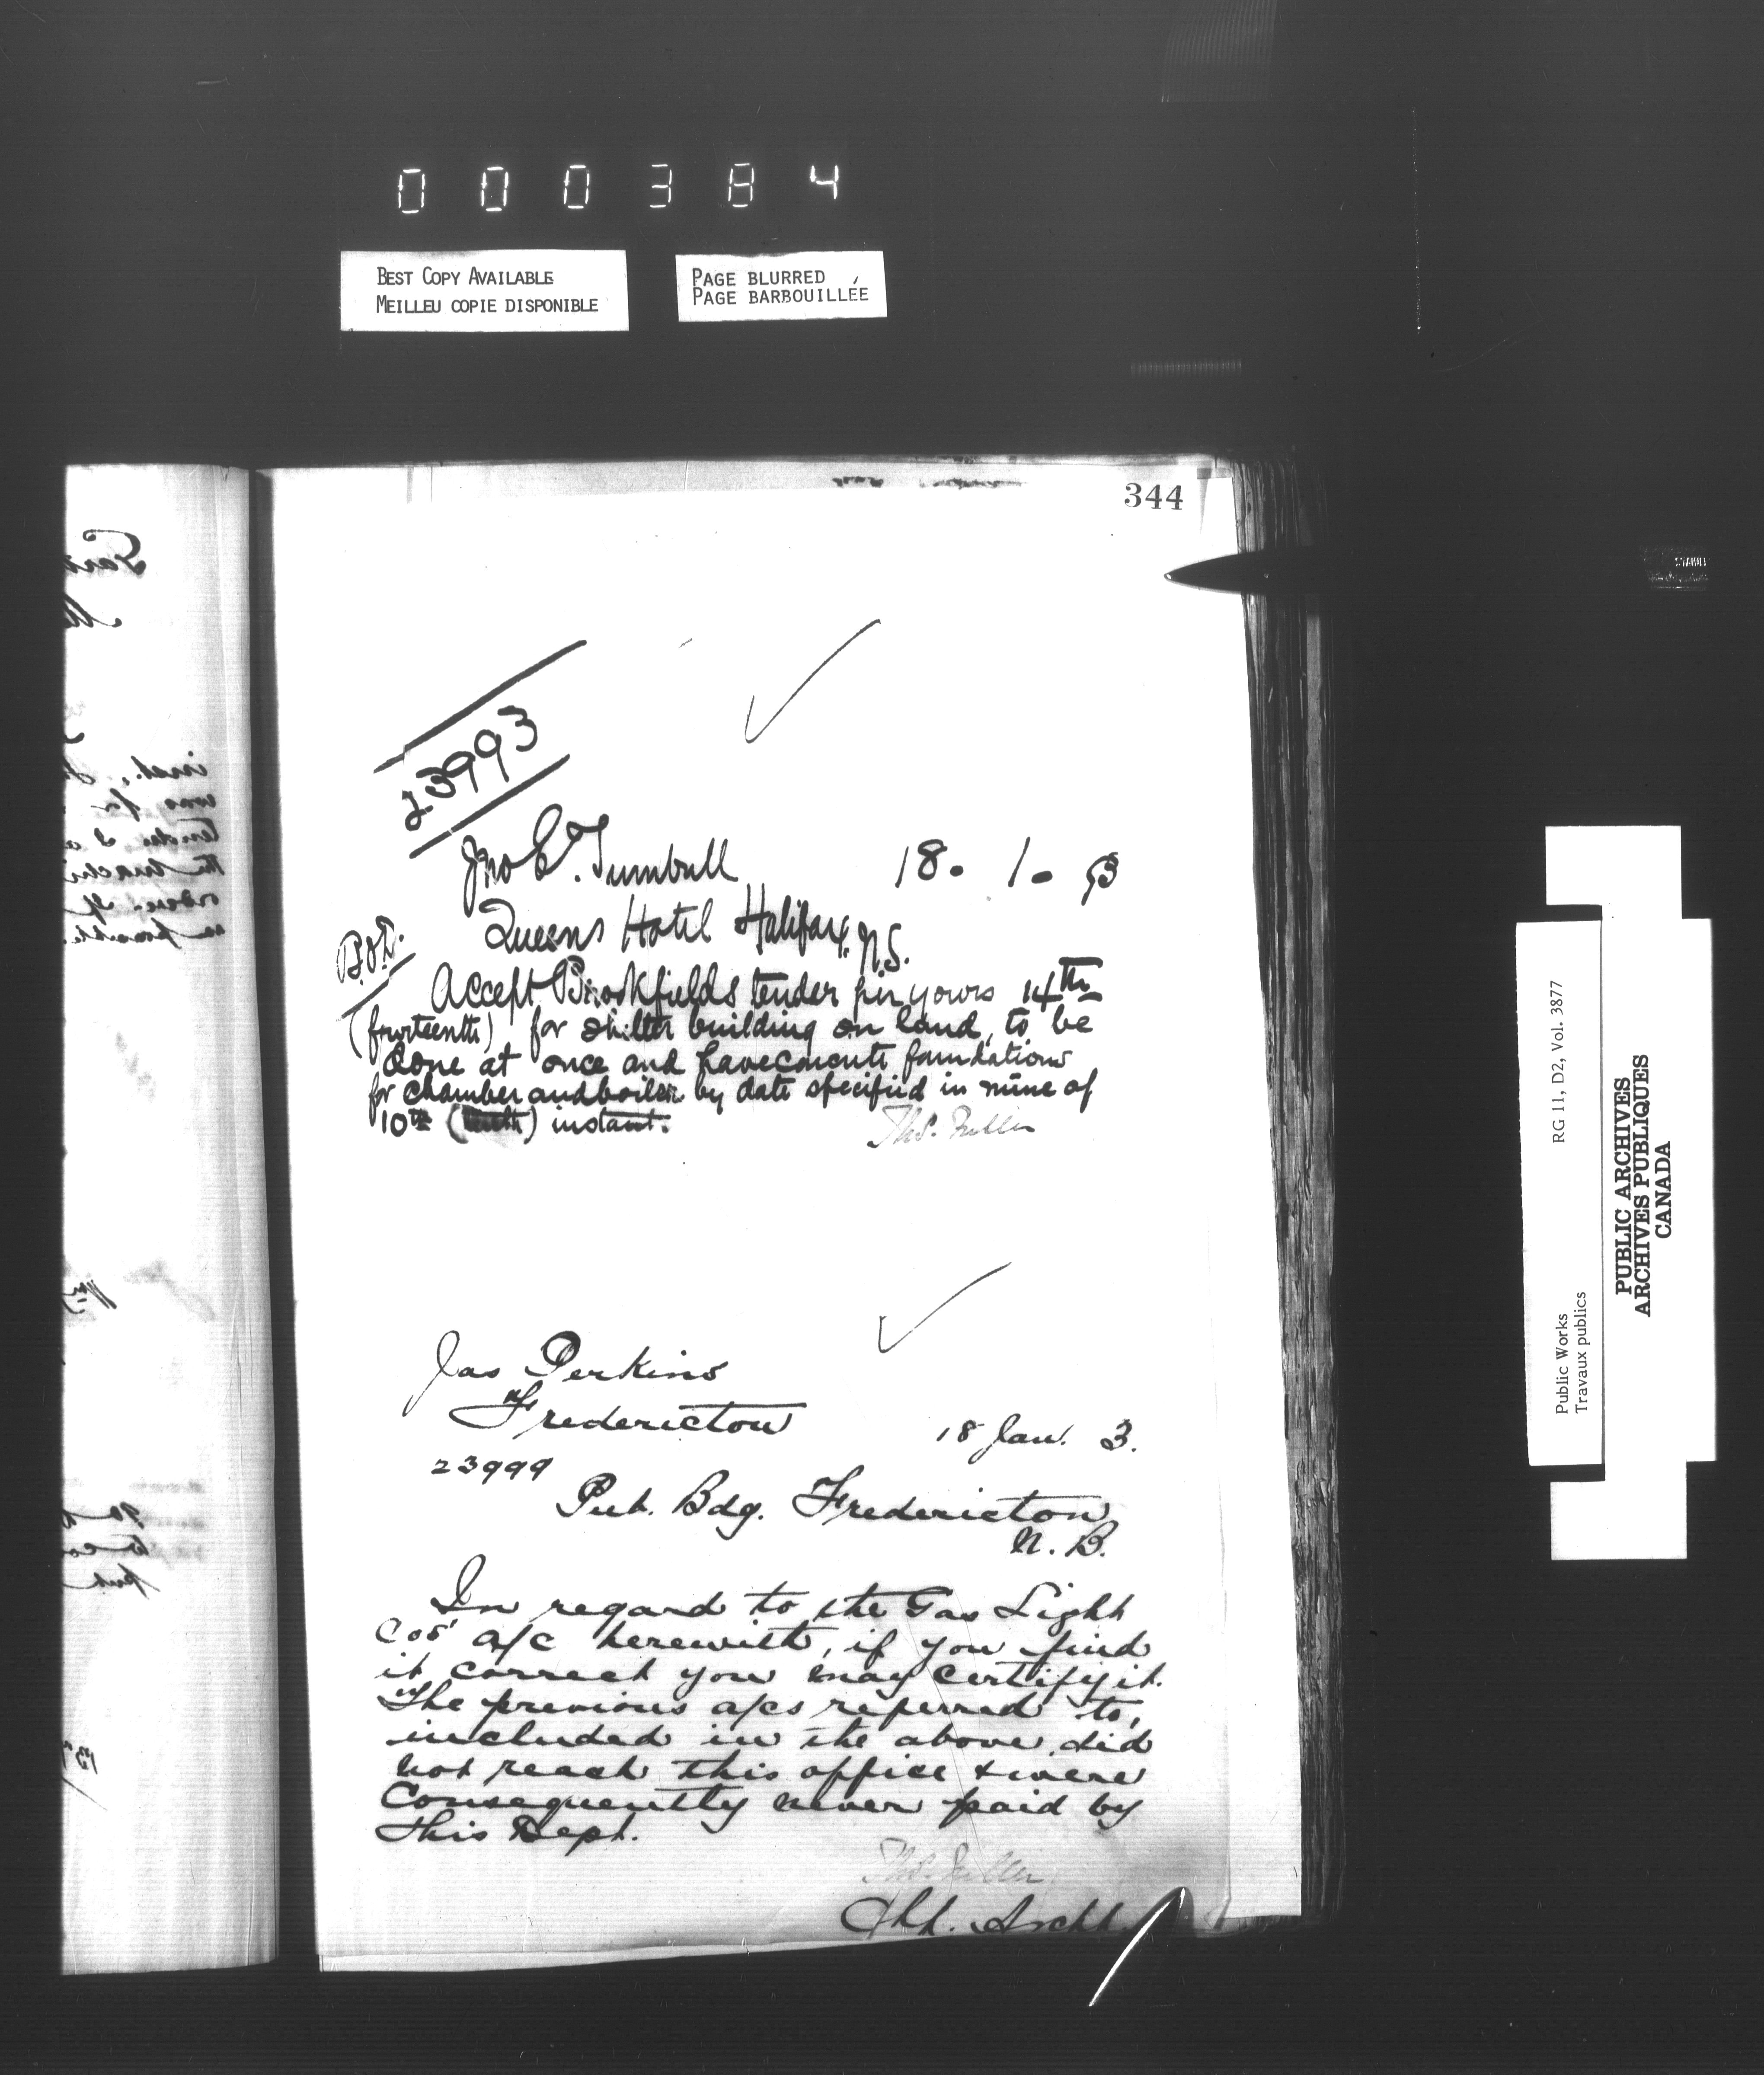 000384
BEST COPY AVAILABLE
MEILLEU COPIE DISPONIBLE
PAGE BLURRED
PAGE BARBOUILLÉE
344
23993
Jno E. Turnbull 18. 1. 93
Queens Hotel Halifax. N.S.
Accept Brookfields tender per yours 14th
(fourteenth) for shelter building on land, to be
done at once and have cement foundations
for chamber and boiler by date specified in mine of
10th (tenth) instant.
Thos. Fuller
Jas Perkins
Fredericton
18 Jan. 3.
23999
Pub. Bdg. Fredericton
N. B.
In regard to the Gas Light
Cos' a/c herewith, if you find
it correct you may certify it.
The previous a/cs referred to,
included in the above, did
not reach this office & were
Consequently never paid by
this Dept.
Thos. Fuller
Chf. Archt.
RG 11, D2, Vol. 3877
Public Works
Travaux publics
PUBLIC ARCHIVES
ARCHIVES PUBLIQUES
CANADA